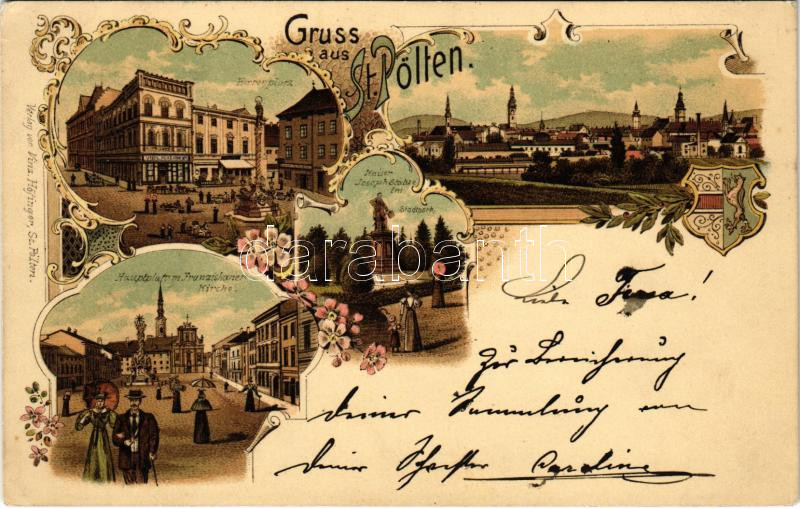 Gruss
aus
St. Pölten.
Herrenplatz
Kaiser
Joseph-Statue
im
Stadtpark.
Hauptplatz m. Franziskaner
Kirche.
Verlag von Vinz. Höfinger, St. Pölten.
darabanth
Liebe !
Zur Bereicherung
deiner Sammlung von
deiner Schwester Caroline